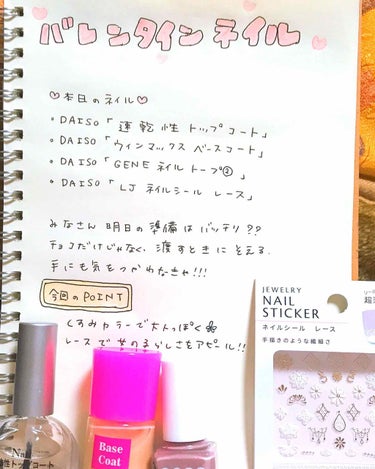 バレンタインネイル
♡本日のネイル♡
• DAISO「速乾性トップコート」
• DAISO「ウィンマックス ベースコート」
• DAISO「GENE ネイル トープ③」
• DAISO「LJ ネイルシール レース」
みなさん明日の準備はバッチリ??
チョコだけじゃなく、渡すときにそえる
手にも気をつかわなきゃ!!!
今回のPOINT
くすみカラーで大人っぽく
レースで女の子らしさをアピール!!
JEWELRY
NAIL
STICKER
ネイルシール レース
手描きのような繊細さ
Nail
性トップコート
Base
Coat